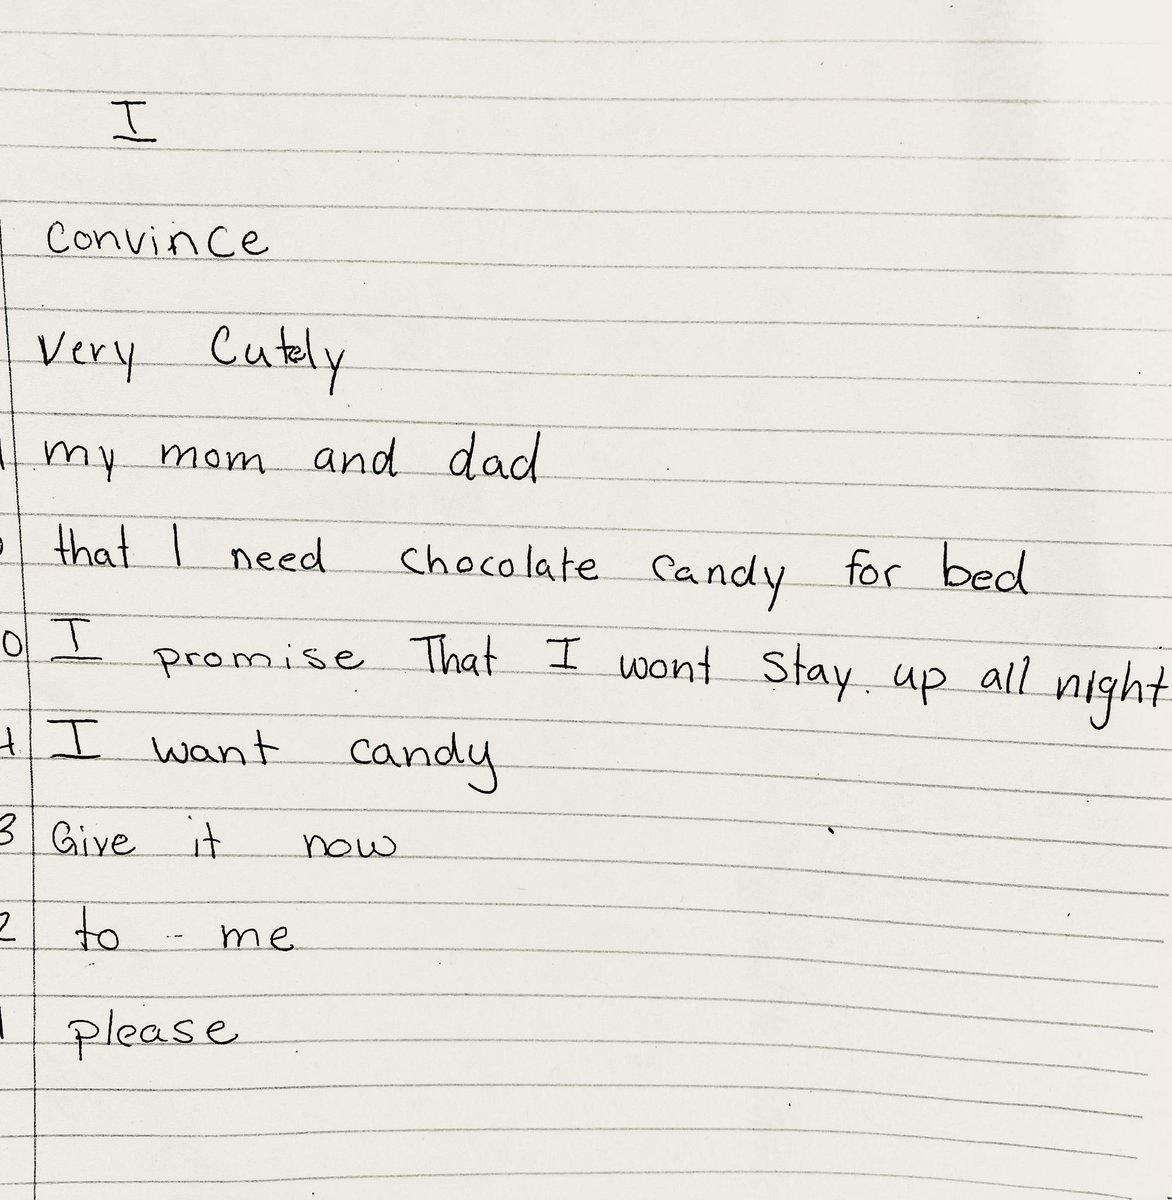 I
Convince
Very Cutely
my mom and dad
that I need chocolate candy for bed
0 I promise That I wont stay up all night
I want candy
3 Give it now
2 to me
please